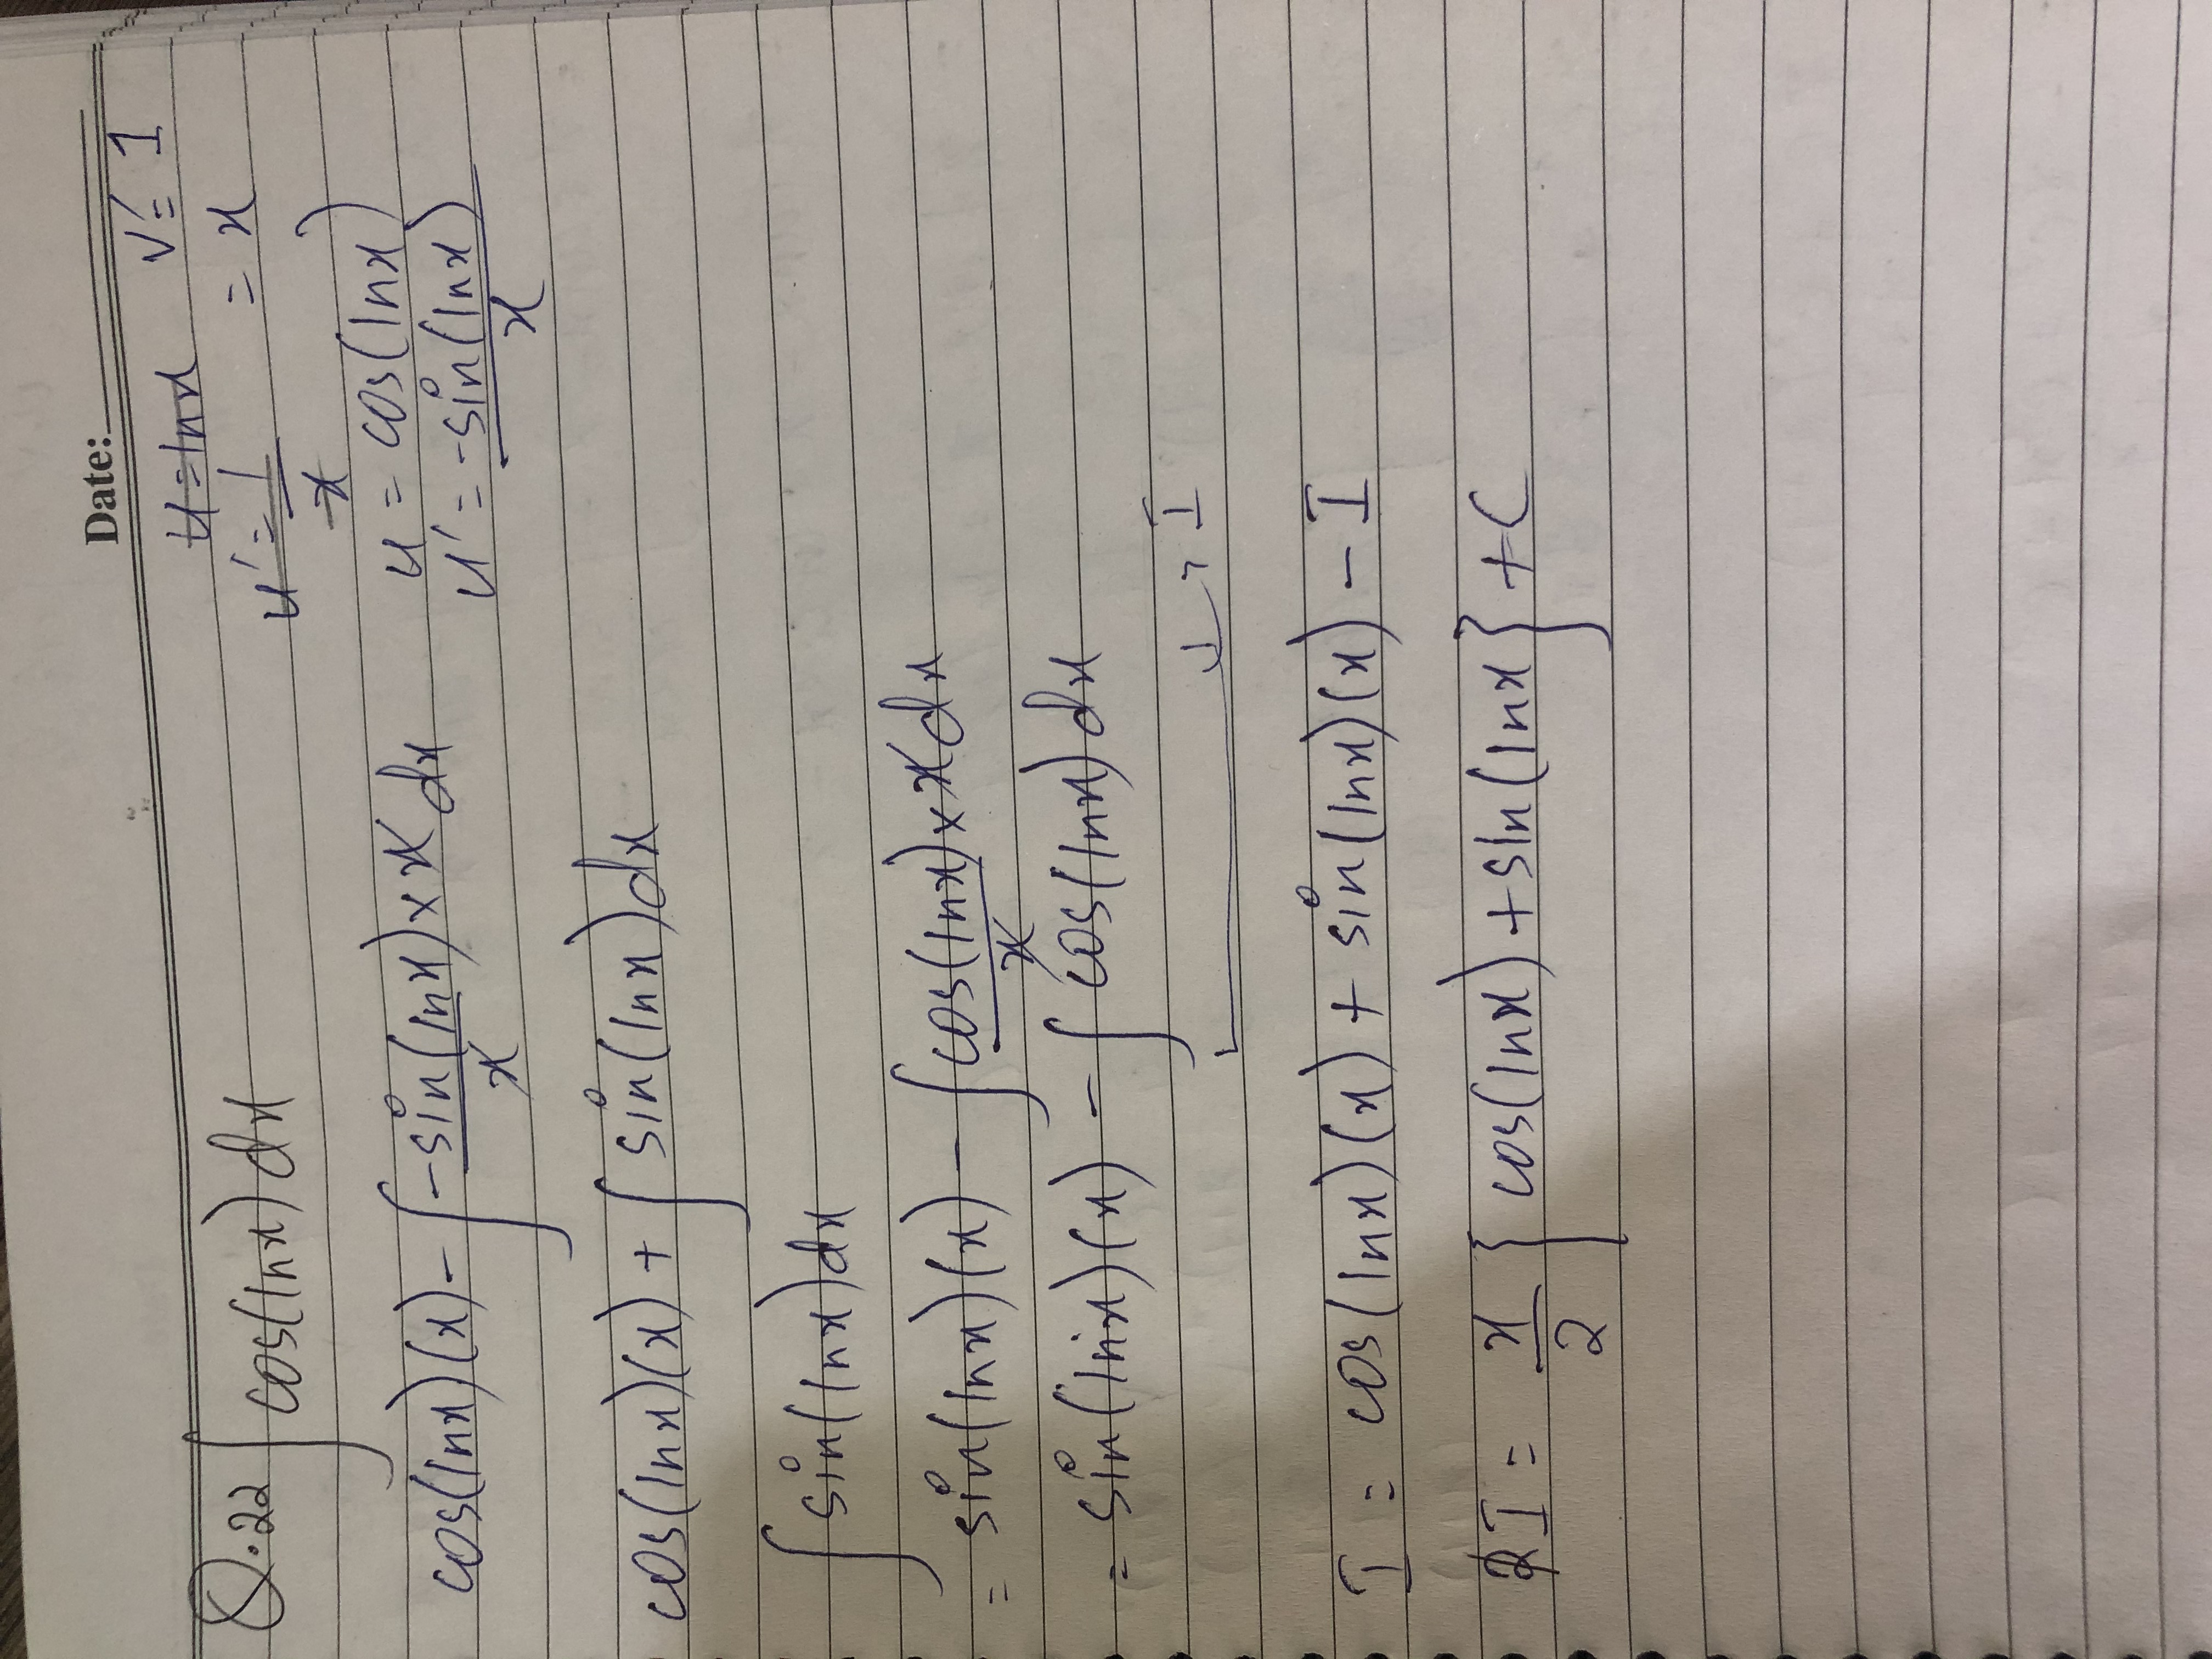 Date:
Q.22 ∫ cos(lnx) dx
u = lnx    v' = 1
u' = 1/x    = x
u = cos(lnx)
u' = -sin(lnx)/x
cos(lnx)(x) - ∫ -sin(lnx)/x × x dx
cos(lnx)(x) + ∫ sin(lnx) dx
∫ sin(lnx) dx
= sin(lnx)(x) - ∫ cos(lnx)/x × x dx
= sin(lnx)(x) - ∫ cos(lnx) dx
→ I
I = cos(lnx)(x) + sin(lnx)(x) - I
2I = x/2 { cos(lnx) + sin(lnx } + C